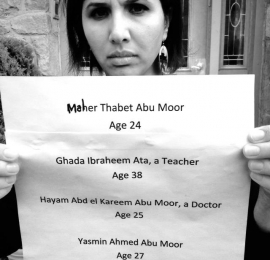 Maher Thabet Abu Moor
Age 24
Ghada Ibraheem Ata, a Teacher
Age 38
Hayam Abd el Kareem Abu Moor, a Doctor
Age 25
Yasmin Ahmed Abu Moor
Age 27